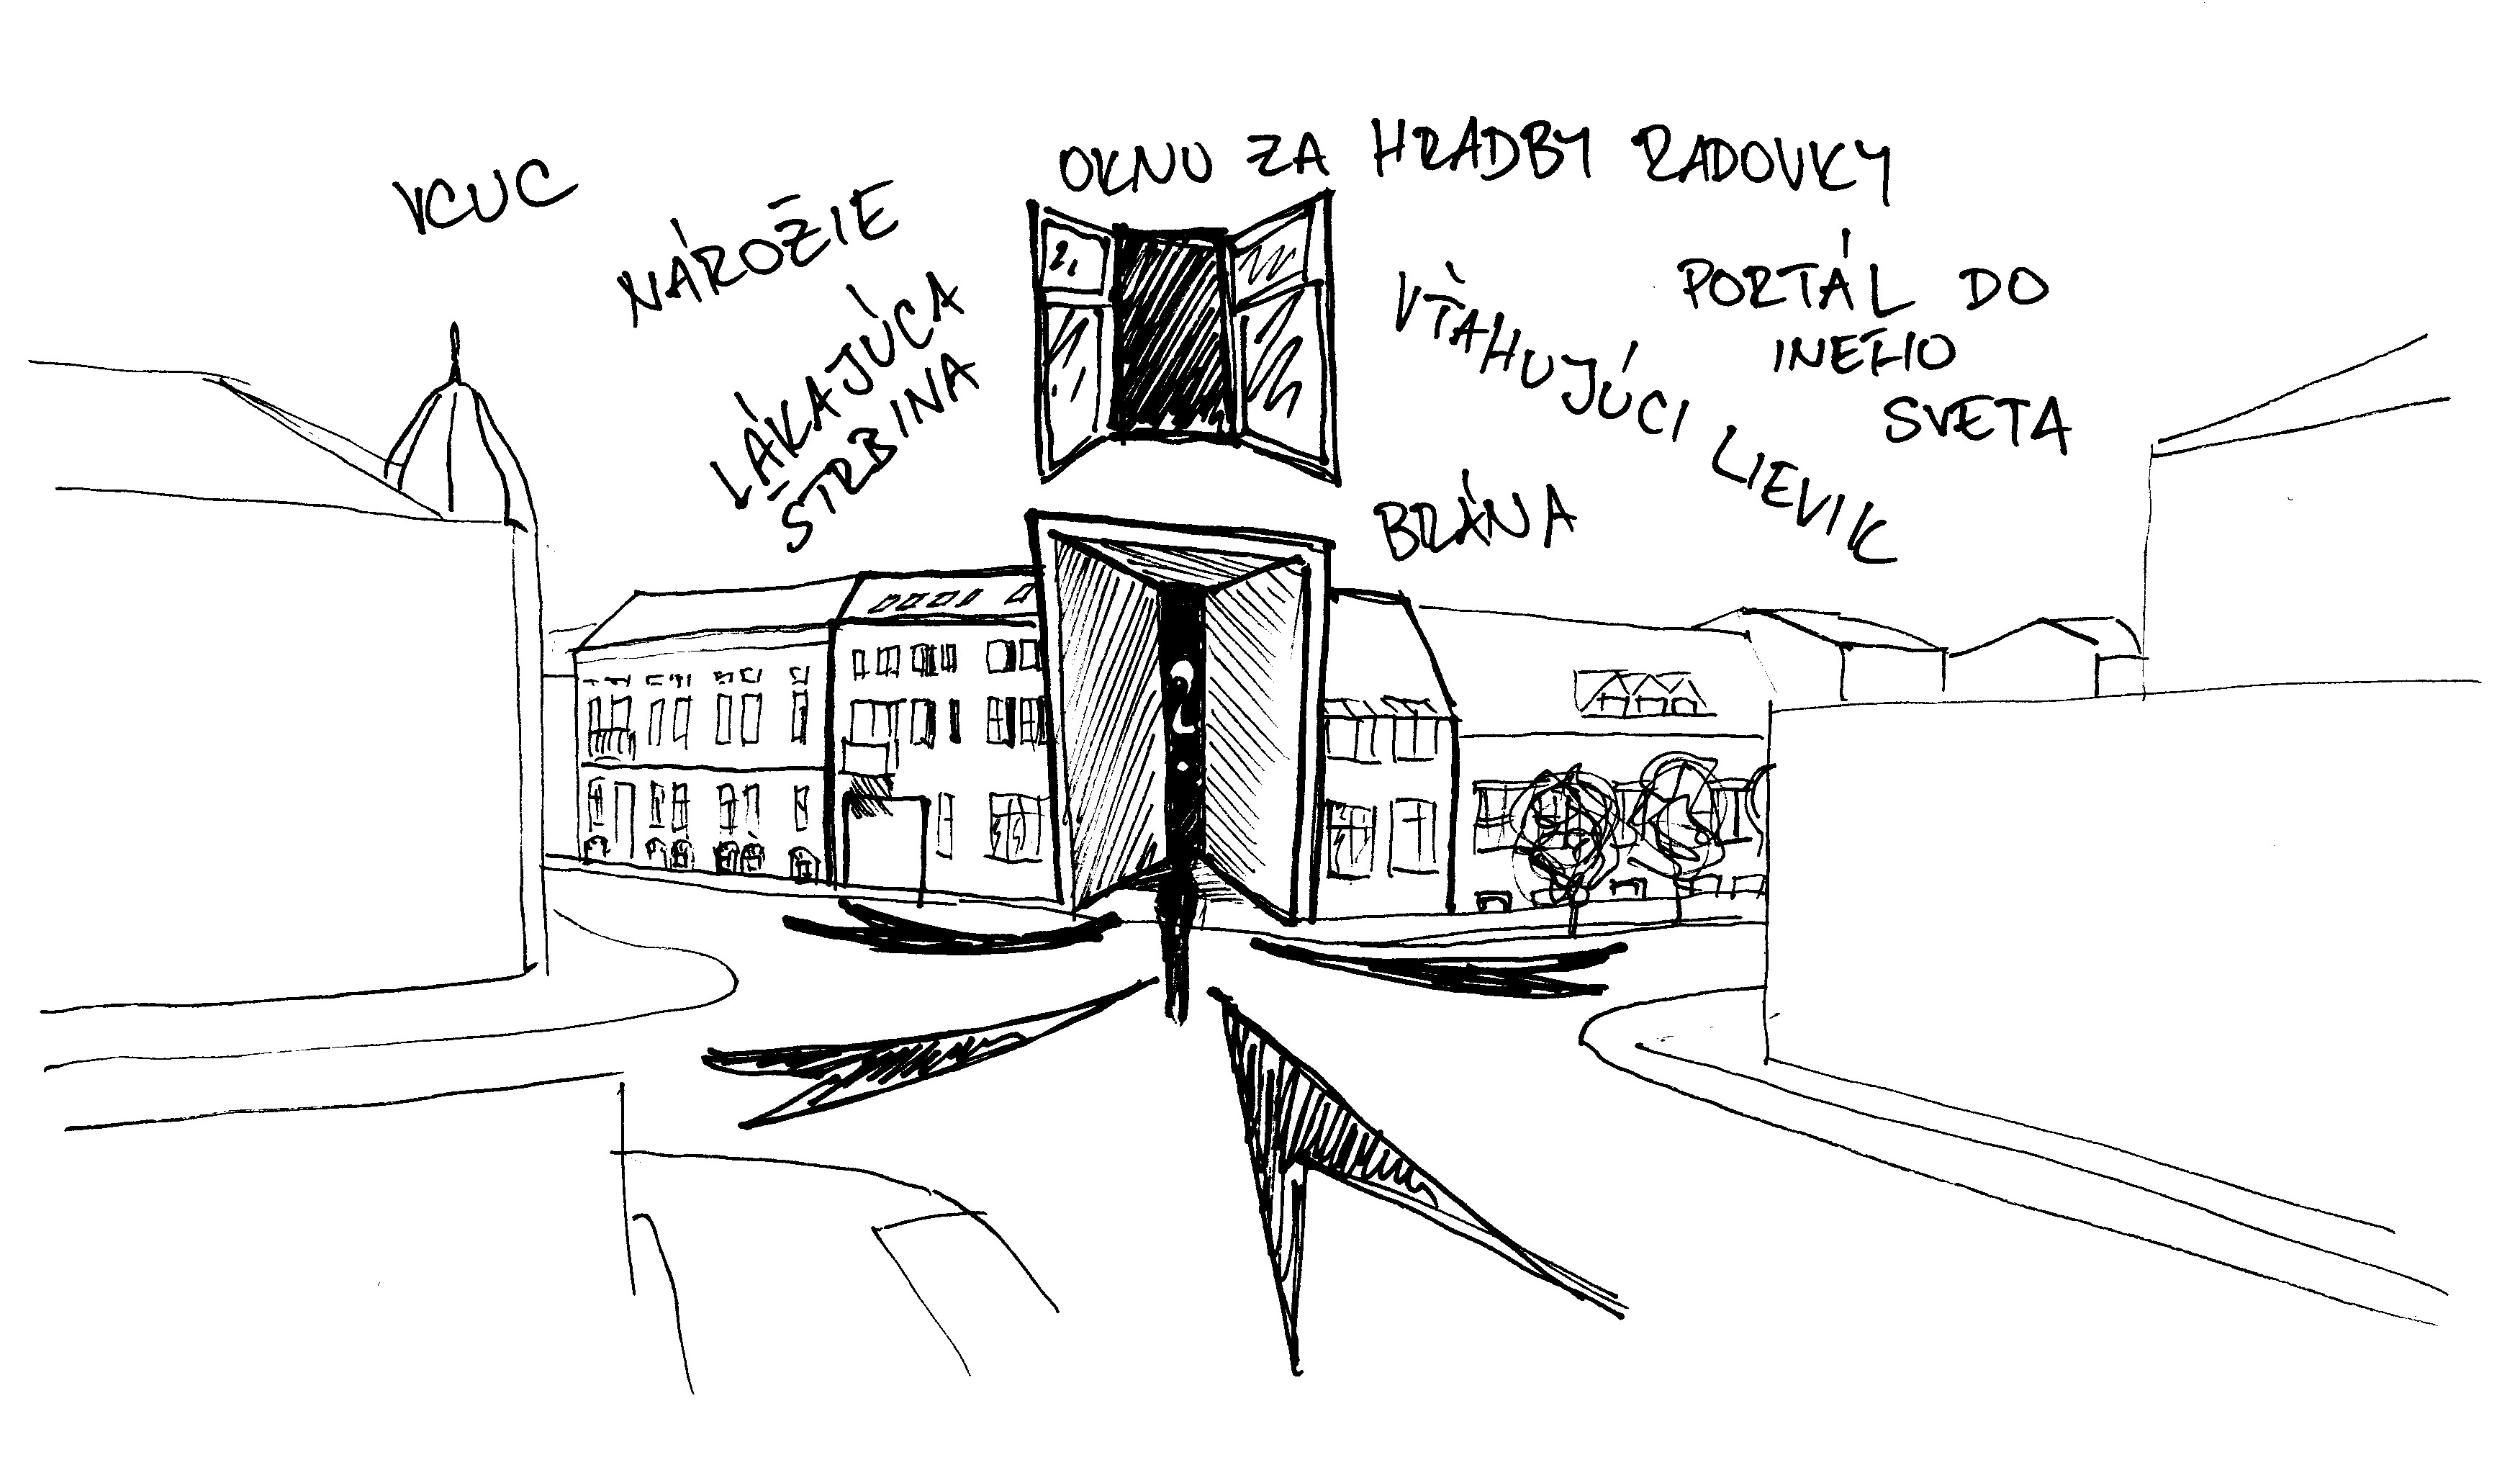 KUC
NÁROŽIE
LÁKAJÚCA
ŠTRBINA
OKNO ZA HRADBY RADOVKY
VŤAHUJÚCI LIEVIK
PORTÁL DO
INÉHO
SVETA
BRÁNA
?